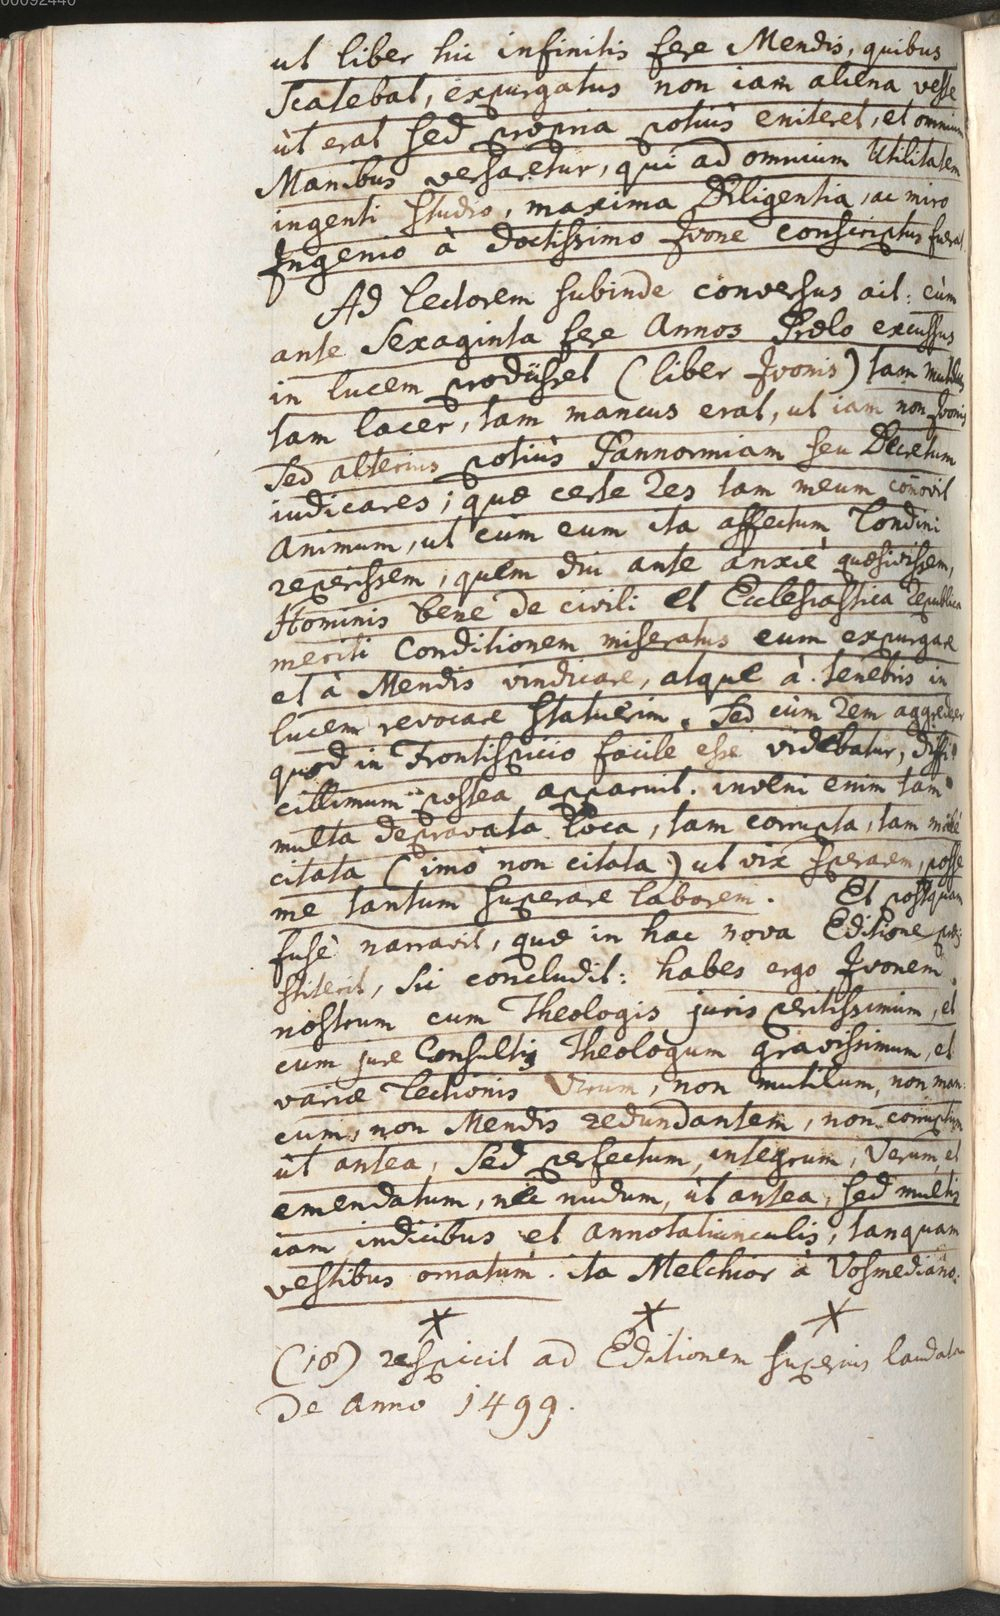 00092440
ut liber hic infinitis fere Mendis, quibus
Scatebat, expurgatus non iam aliena veste
ùt erat sed propria potiùs eniteret, et omnium
Manibus versaretur, qui ad omnium Utilitatem
ingenti studio, maxima Diligentia, ac miro
Ingenio à doctissimo Ivone conscriptus fuerat
Ad lectorem subinde conversus ait: cùm
ante Sexaginta fere Annos Prælo excussus
in lucem prodiisset (liber Ivonis) tam mutilus
tam lacer, tam mancus erat, ut iam non Ivonis
Sed alterius potiùs Pannormiam seu Decretum
iudicares; quæ certe Res tam meum com̄ovit
Animum, ut cùm eum ita affectum Londini
reperissem, quem diu ante anxiè quæsivissem,
Hominis bene de civili et Ecclesiastica republica
meriti Conditionem miseratus eum expurgare
et à Mendis vindicare, atque à tenebris in
lucem revocare statuerim. Sed cùm rem aggrederer
quod in Frontispicio facile esse videbatur, diffi-
cillimum postea apparuit. inveni enim tam
multa depravata loca, tam corrupta, tam malè
citata (imò non citata) ut vix sperarem, posse
me tantum superare laborem. Et postquam
fusè narravit, quæ in hac nova Editione præ-
stiterit, sic concludit: habes ergo Ivonem
nostrum cum Theologis juris peritissimum, et
cum jure Consultis Theologum gravissimum, et
variæ lectionis Virum, non mutilum, non man-
cum, non Mendis redundantem, non corruptum
ùt antea, Sed perfectum, integrum, Verum, et
emendatum, nec nudum, ùt antea, sed multis
iam indicibus et annotatiunculis, tanquam
vestibus ornatum. ita Melchior à Vosmediano.
(18) respicit ad Editionem superius laudatam
de anno 1499.